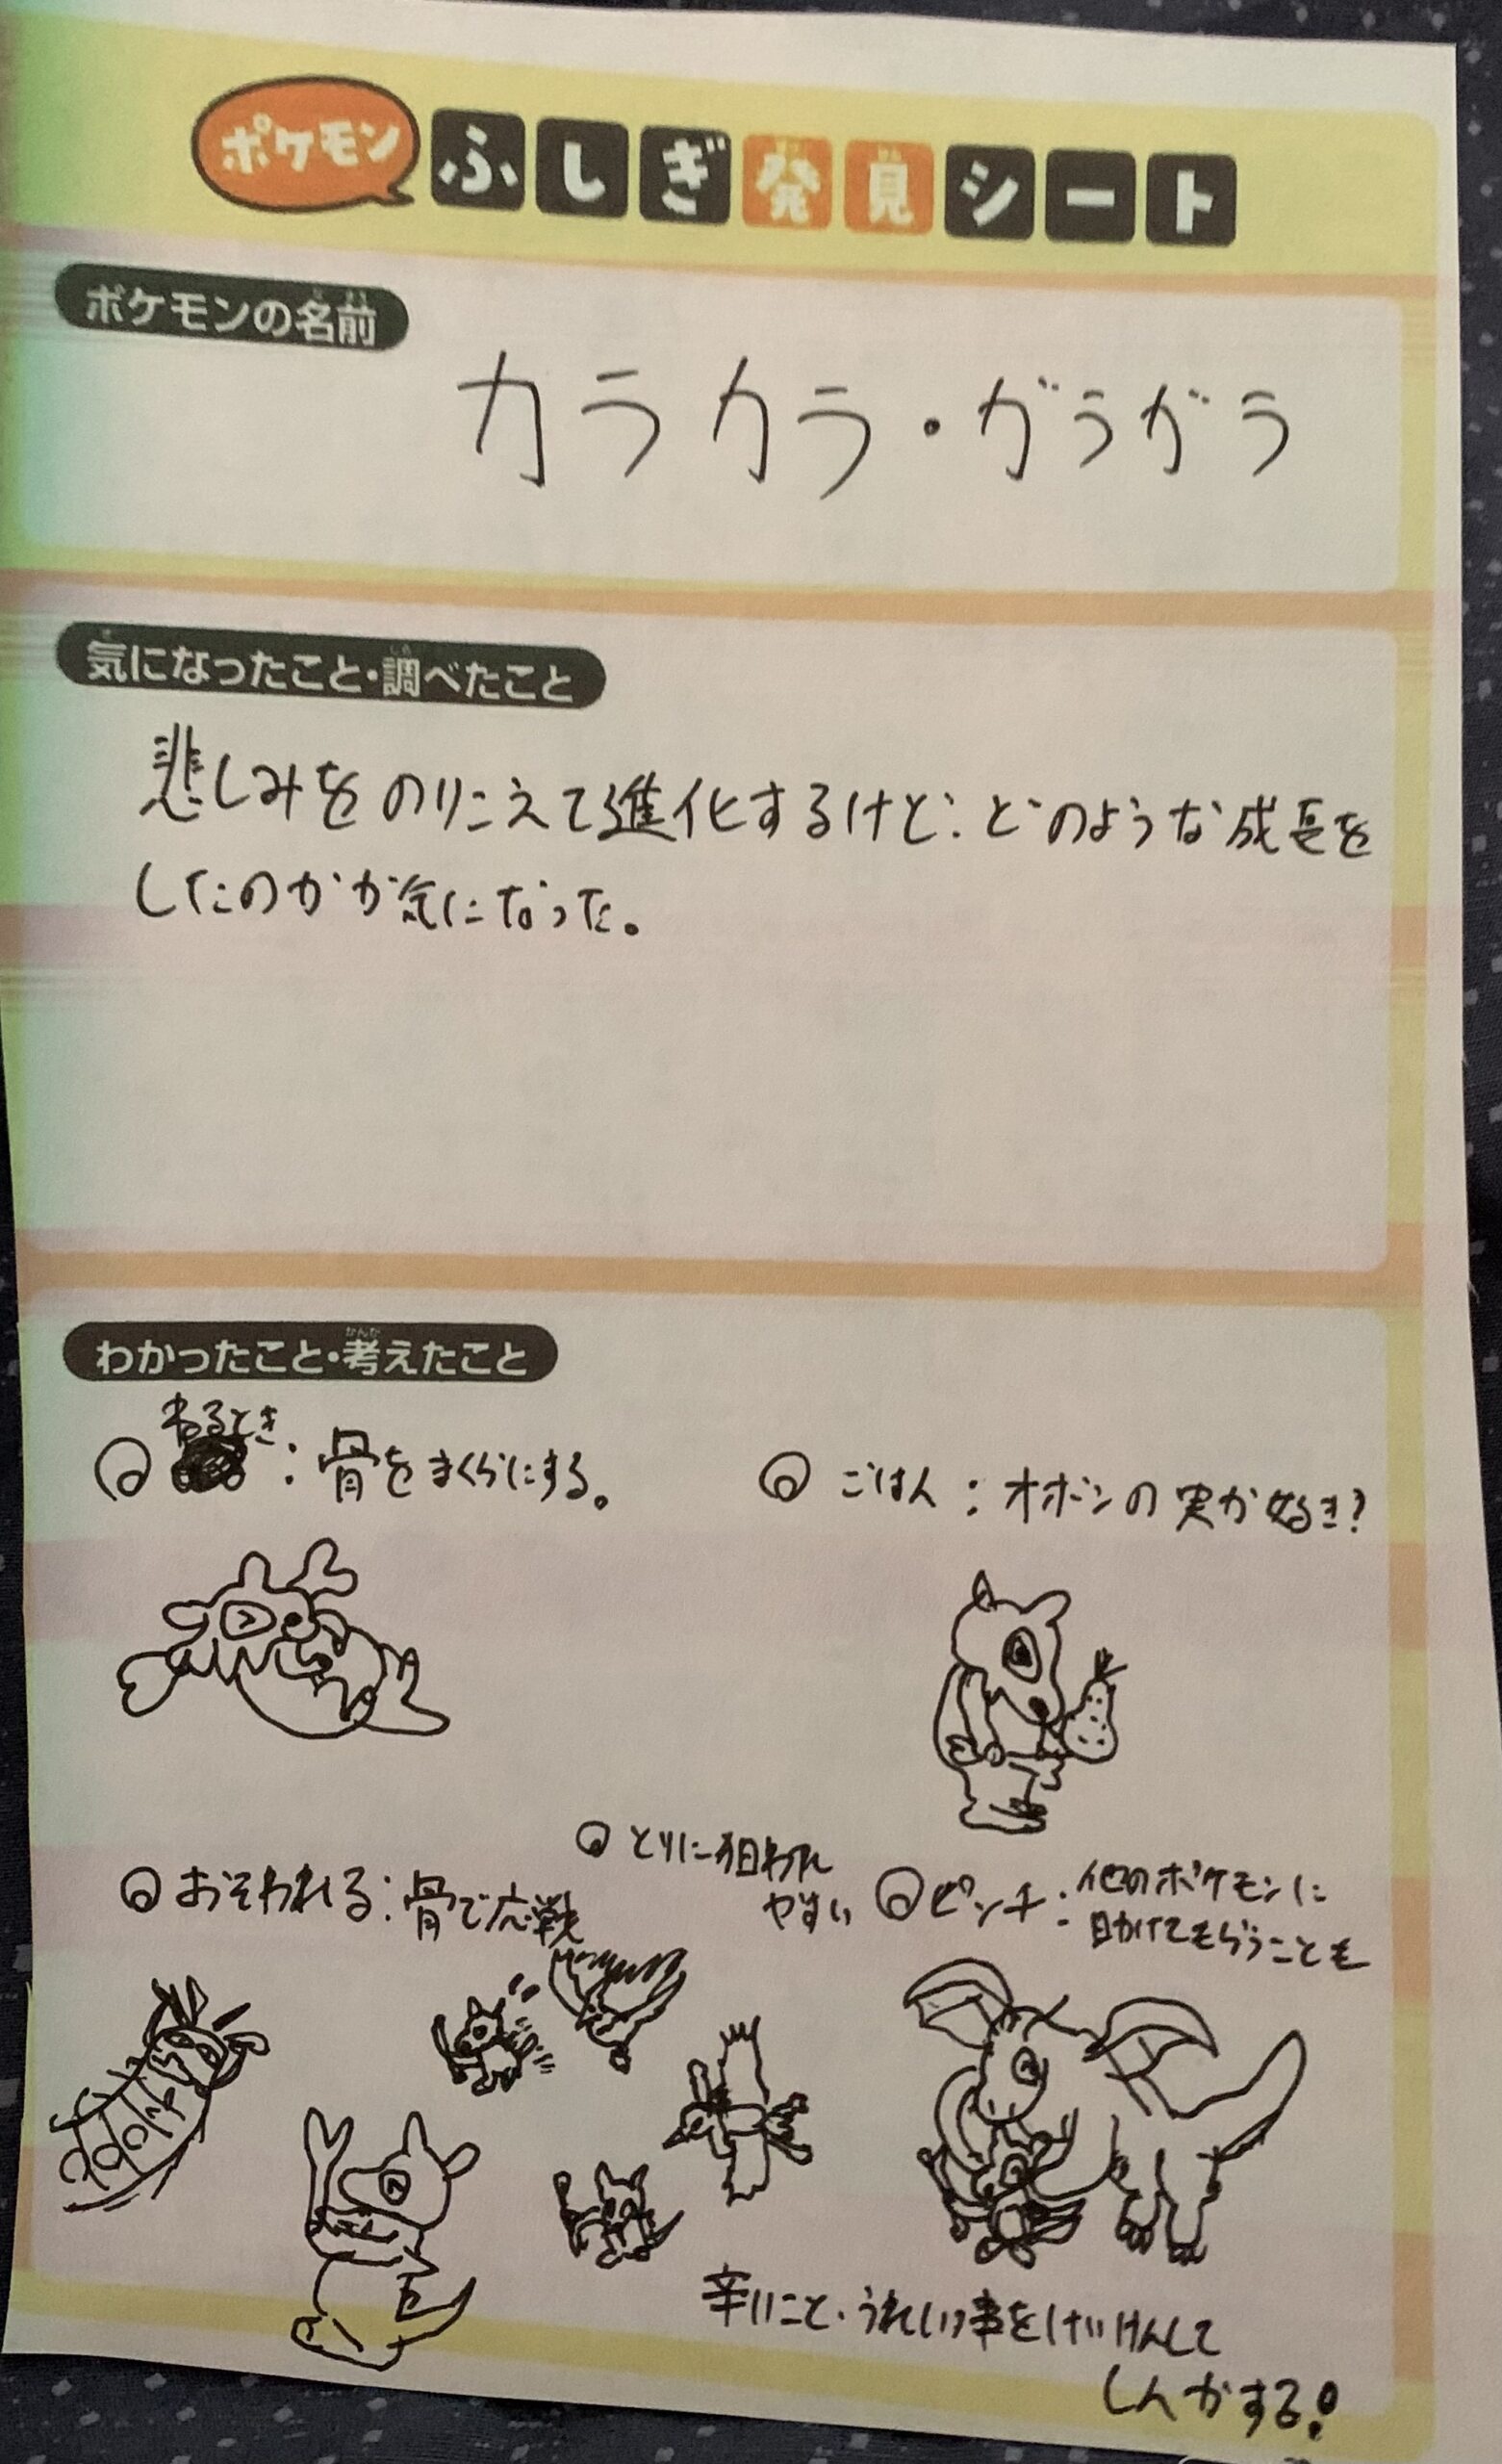 ポケモンふしぎ発見シート
ポケモンの名前
カラカラ・ガラガラ
気になったこと・調べたこと
悲しみをのりこえて進化するけど、どのような成長を
したのかが気になった。
わかったこと・考えたこと
ねるとき:骨をまくらにする。
ごはん:オボンの実が好き?
おそわれる:骨で応戦
とりに狙われ
やすい
ピンチ:他のポケモンに
助けてもらうことも
辛いこと・うれしい事をけいけんして
しんかする!